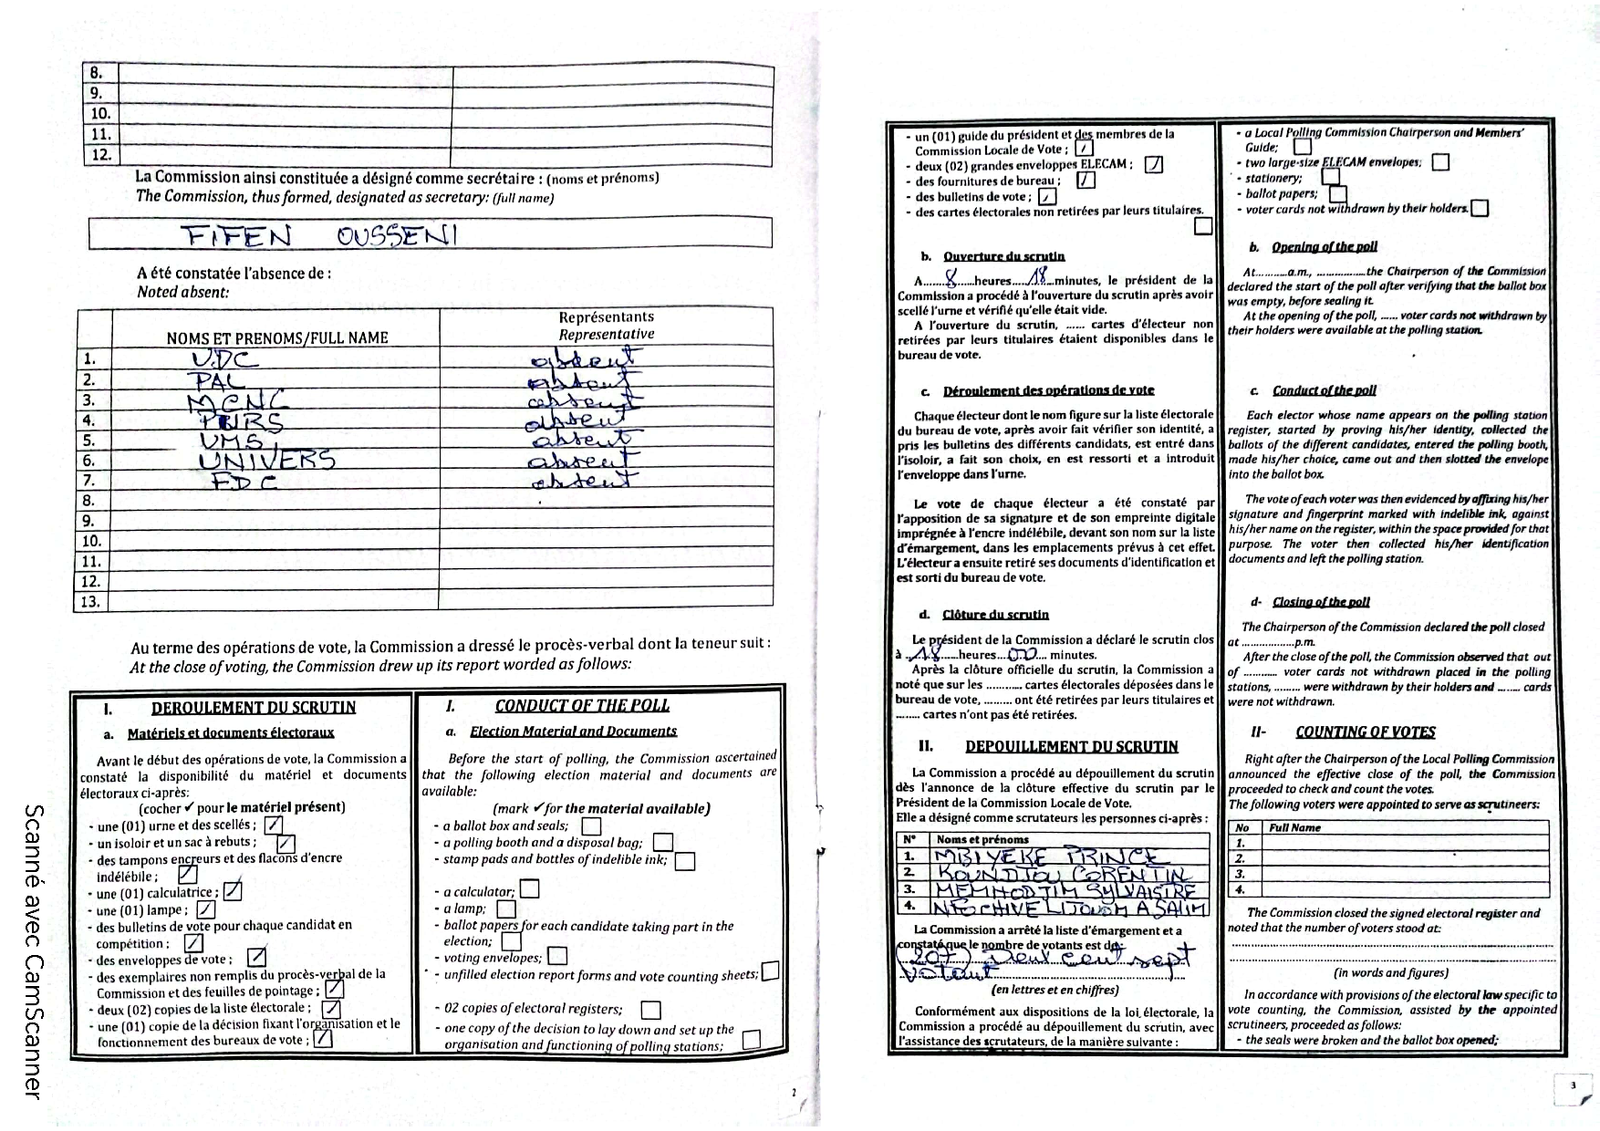 8.
9.
10.
11.
12.
La Commission ainsi constituée a désigné comme secrétaire : (noms et prénoms)
The Commission, thus formed, designated as secretary: (full name)
FIFEN OUSSENI
A été constatée l'absence de :
Noted absent:
NOMS ET PRENOMS/FULL NAME
Représentants
Representative
1. UDC absent
2. PAL absent
3. MCNC absent
4. absent
5. UMS absent
6. UNIVERS absent
7. FDC absent
8.
9.
10.
11.
12.
13.
Au terme des opérations de vote, la Commission a dressé le procès-verbal dont la teneur suit :
At the close of voting, the Commission drew up its report worded as follows:
I. DEROULEMENT DU SCRUTIN
a. Matériels et documents électoraux
Avant le début des opérations de vote, la Commission a
constaté la disponibilité du matériel et documents
électoraux ci-après:
(cocher ✓ pour le matériel présent)
- une (01) urne et des scellés ;
- un isoloir et un sac à rebuts ;
- des tampons encreurs et des flacons d'encre
indélébile ;
- une (01) calculatrice ;
- une (01) lampe ;
- des bulletins de vote pour chaque candidat en
compétition ;
- des enveloppes de vote ;
- des exemplaires non remplis du procès-verbal de la
Commission et des feuilles de pointage ;
- deux (02) copies de la liste électorale ;
- une (01) copie de la décision fixant l'organisation et le
fonctionnement des bureaux de vote ;
I. CONDUCT OF THE POLL
a. Election Material and Documents
Before the start of polling, the Commission ascertained
that the following election material and documents are
available:
(mark ✓ for the material available)
- a ballot box and seals;
- a polling booth and a disposal bag;
- stamp pads and bottles of indelible ink;
- a calculator;
- a lamp;
- ballot papers for each candidate taking part in the
election;
- voting envelopes;
- unfilled election report forms and vote counting sheets;
- 02 copies of electoral registers;
- one copy of the decision to lay down and set up the
organisation and functioning of polling stations;
2
Scanné avec CamScanner
- un (01) guide du président et des membres de la
Commission Locale de Vote ;
- deux (02) grandes enveloppes ELECAM ;
- des fournitures de bureau ;
- des bulletins de vote ;
- des cartes électorales non retirées par leurs titulaires.
b. Ouverture du scrutin
A........8......heures.....18....minutes, le président de la
Commission a procédé à l'ouverture du scrutin après avoir
scellé l'urne et vérifié qu'elle était vide.
A l'ouverture du scrutin, ...... cartes d'électeur non
retirées par leurs titulaires étaient disponibles dans le
bureau de vote.
c. Déroulement des opérations de vote
Chaque électeur dont le nom figure sur la liste électorale
du bureau de vote, après avoir fait vérifier son identité, a
pris les bulletins des différents candidats, est entré dans
l'isoloir, a fait son choix, en est ressorti et a introduit
l'enveloppe dans l'urne.
Le vote de chaque électeur a été constaté par
l'apposition de sa signature et de son empreinte digitale
imprégnée à l'encre indélébile, devant son nom sur la liste
d'émargement, dans les emplacements prévus à cet effet.
L'électeur a ensuite retiré ses documents d'identification et
est sorti du bureau de vote.
d. Clôture du scrutin
Le président de la Commission a déclaré le scrutin clos
à ..18......heures....00.... minutes.
Après la clôture officielle du scrutin, la Commission a
noté que sur les ........... cartes électorales déposées dans le
bureau de vote, ......... ont été retirées par leurs titulaires et
........ cartes n'ont pas été retirées.
II. DEPOUILLEMENT DU SCRUTIN
La Commission a procédé au dépouillement du scrutin
dès l'annonce de la clôture effective du scrutin par le
Président de la Commission Locale de Vote.
Elle a désigné comme scrutateurs les personnes ci-après :
N° Noms et prénoms
1. MBIYEKE PRINCE
2. KOUNDJOU CORENTIN
3. SYLVAISTRE
4.
La Commission a arrêté la liste d'émargement et a
constaté que le nombre de votants est de
(207) Deux cent sept
votant
(en lettres et en chiffres)
Conformément aux dispositions de la loi, électorale, la
Commission a procédé au dépouillement du scrutin, avec
l'assistance des scrutateurs, de la manière suivante :
- a Local Polling Commission Chairperson and Members'
Guide;
- two large-size ELECAM envelopes;
- stationery;
- ballot papers;
- voter cards not withdrawn by their holders.
b. Opening of the poll
At..........a.m., ................the Chairperson of the Commission
declared the start of the poll after verifying that the ballot box
was empty, before sealing it.
At the opening of the poll, ...... voter cards not withdrawn by
their holders were available at the polling station.
c. Conduct of the poll
Each elector whose name appears on the polling station
register, started by proving his/her identity, collected the
ballots of the different candidates, entered the polling booth,
made his/her choice, came out and then slotted the envelope
into the ballot box.
The vote of each voter was then evidenced by affixing his/her
signature and fingerprint marked with indelible ink, against
his/her name on the register, within the space provided for that
purpose. The voter then collected his/her identification
documents and left the polling station.
d- Closing of the poll
The Chairperson of the Commission declared the poll closed
at .................p.m.
After the close of the poll, the Commission observed that out
of ........... voter cards not withdrawn placed in the polling
stations, ........ were withdrawn by their holders and ....... cards
were not withdrawn.
II- COUNTING OF VOTES
Right after the Chairperson of the Local Polling Commission
announced the effective close of the poll, the Commission
proceeded to check and count the votes.
The following voters were appointed to serve as scrutineers:
No Full Name
1.
2.
3.
4.
The Commission closed the signed electoral register and
noted that the number of voters stood at:
(in words and figures)
In accordance with provisions of the electoral law specific to
vote counting, the Commission, assisted by the appointed
scrutineers, proceeded as follows:
- the seals were broken and the ballot box opened;
3